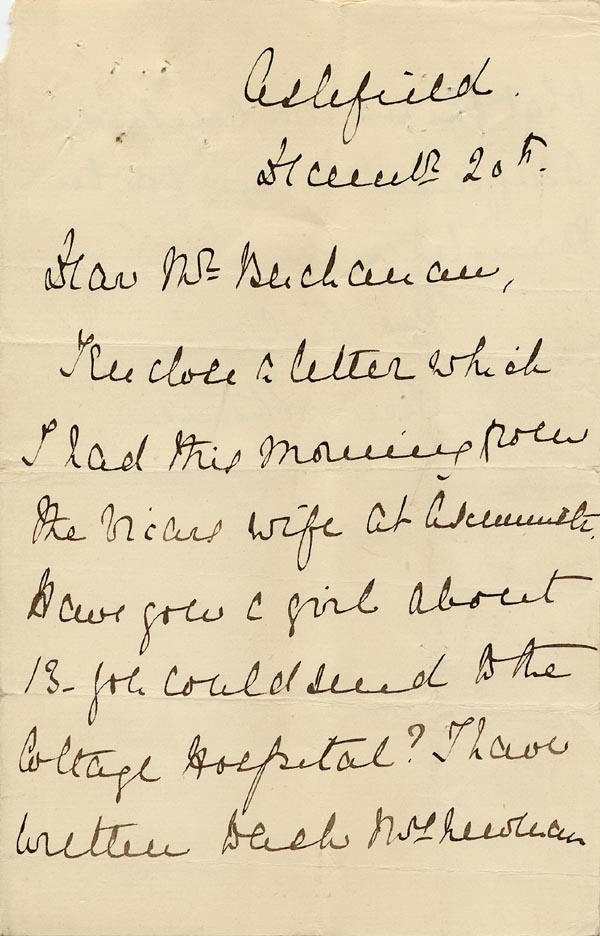 Ashfield.
Decembr 20th.
Dear Mr Buchanan,
I enclose a letter which
I had this morning from
the Vicars wife at
Have you a girl about
13- you could send to the
Cottage Hospital? I have
written back Mrs Newman